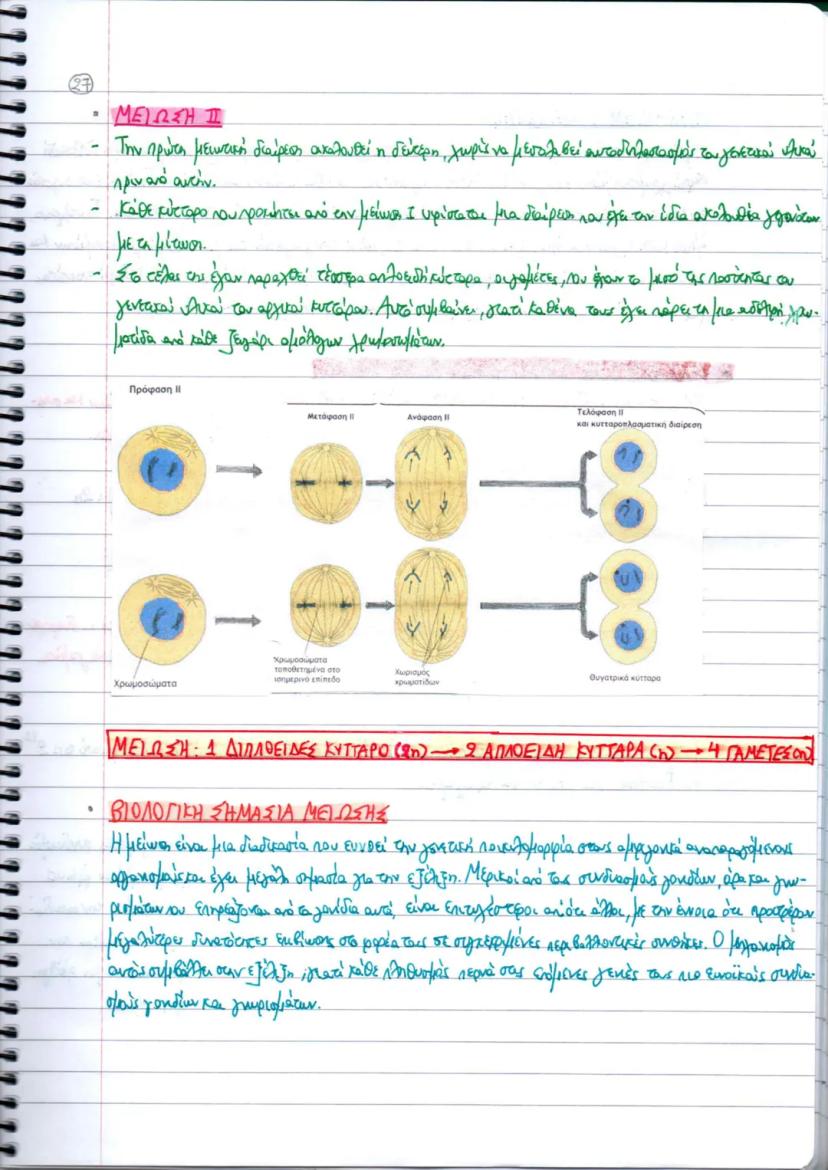 27
ΜΕΙΩΣΗ ΙΙ
- Την πρώτη μειωτική διαίρεση ακολουθεί η δεύτερη, χωρίς να μεσολαβεί αυτοδιπλασιασμός του γενετικού υλικού
πριν από αυτήν.
- Κάθε κύτταρο που προκύπτει από την μείωση Ι υφίσταται μια διαίρεση που έχει την ίδια ακολουθία γεγονότων
με τη μίτωση.
- Στο τέλος της έχουν παραχθεί τέσσερα απλοειδή κύτταρα, οι γαμέτες, που έχουν το μισό της ποσότητας του
γενετικού υλικού του αρχικού κυττάρου. Αυτό συμβαίνει, γιατί καθένα τους έχει πάρει τη μια αδελφή χρω-
ματίδα από κάθε ζευγάρι ομόλογων χρωμοσωμάτων.
Πρόφαση ΙΙ
Μετάφαση ΙΙ
Ανάφαση ΙΙ
Τελόφαση ΙΙ
και κυτταροπλασματική διαίρεση
Χρωμοσώματα
Χρωμοσώματα
τοποθετημένα στο
ισημερινό επίπεδο
Χωρισμός
χρωματίδων
Θυγατρικά κύτταρα
ΜΕΙΩΣΗ: 1 ΔΙΠΛΟΕΙΔΕΣ ΚΥΤΤΑΡΟ (2n) → 2 ΑΠΛΟΕΙΔΗ ΚΥΤΤΑΡΑ (n) → 4 ΓΑΜΕΤΕΣ (n)
ΒΙΟΛΟΓΙΚΗ ΣΗΜΑΣΙΑ ΜΕΙΩΣΗΣ
Η μείωση είναι μια διαδικασία που ευνοεί την γενετική ποικιλομορφία στους αμφιγονικά αναπαραγόμενους
οργανισμούς και έχει μεγάλη σημασία για την εξέλιξη. Μερικοί από τους συνδιασμούς γονιδίων, άρα και γνω-
ρισμάτων που επηρεάζονται από τα γονίδια αυτά, είναι επιτυχέστεροι απ'ότι άλλοι, με την έννοια ότι προσφέρουν
μεγαλύτερες δυνατότητες επιβίωσης στο φορέα τους σε συγκεκριμένες περιβαλλοντικές συνθήκες. Ο μηχανισμός
αυτός συμβάλλει στην εξέλιξη, γιατί κάθε πληθυσμός περνά στις επόμενες γενιές τους πιο ευνοϊκούς συνδια-
σμούς γονιδίων και γνωρισμάτων.